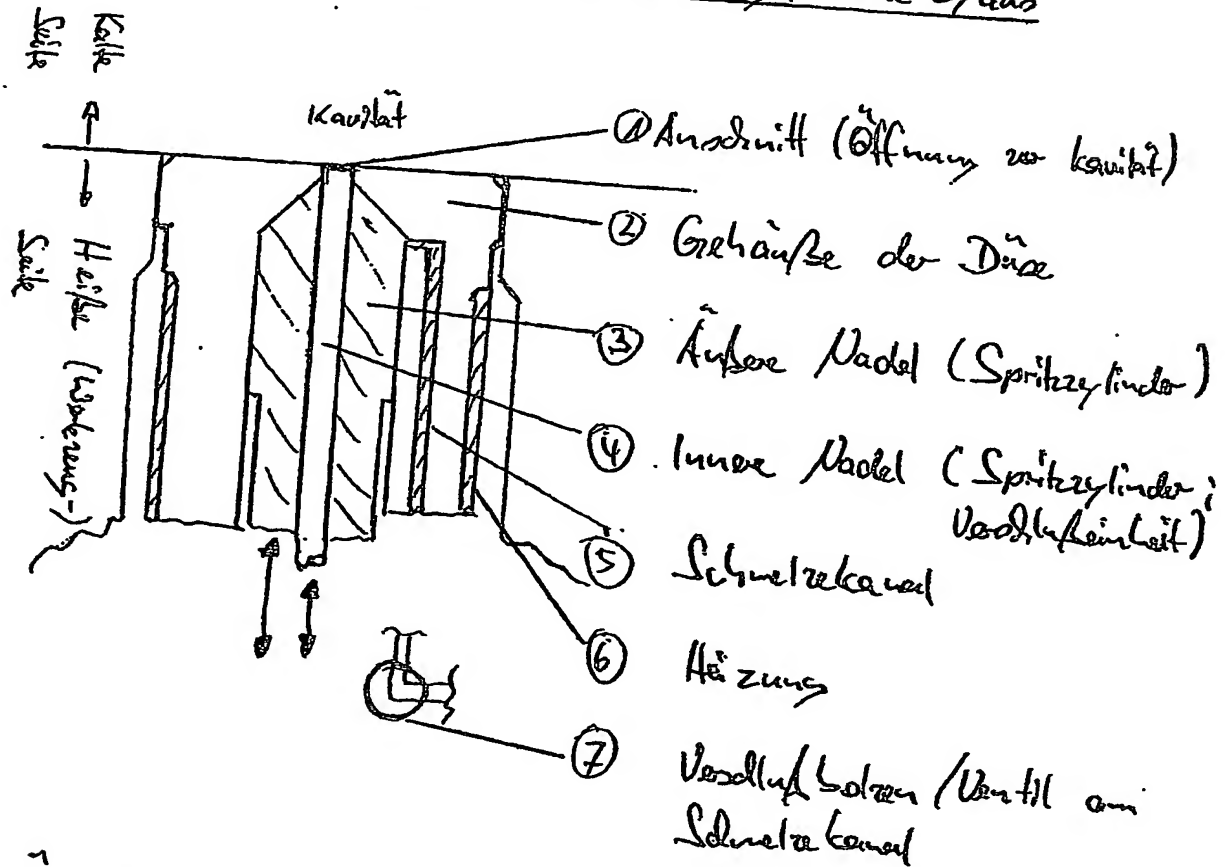 Kalte
Seite
Kavität
① Anschnitt (Öffnung zur Kavität)
② Gehäuße der Düse
③ Äußere Nadel (Spritzzylinder)
④ Innere Nadel (Spritzzylinder;
Verschlußeinheit)
⑤ Schmelzekanal
⑥ Heizung
⑦ Verschlußbolzen/Ventil am
Schmelzekanal
Heiße (Werkzeug-)
Seite